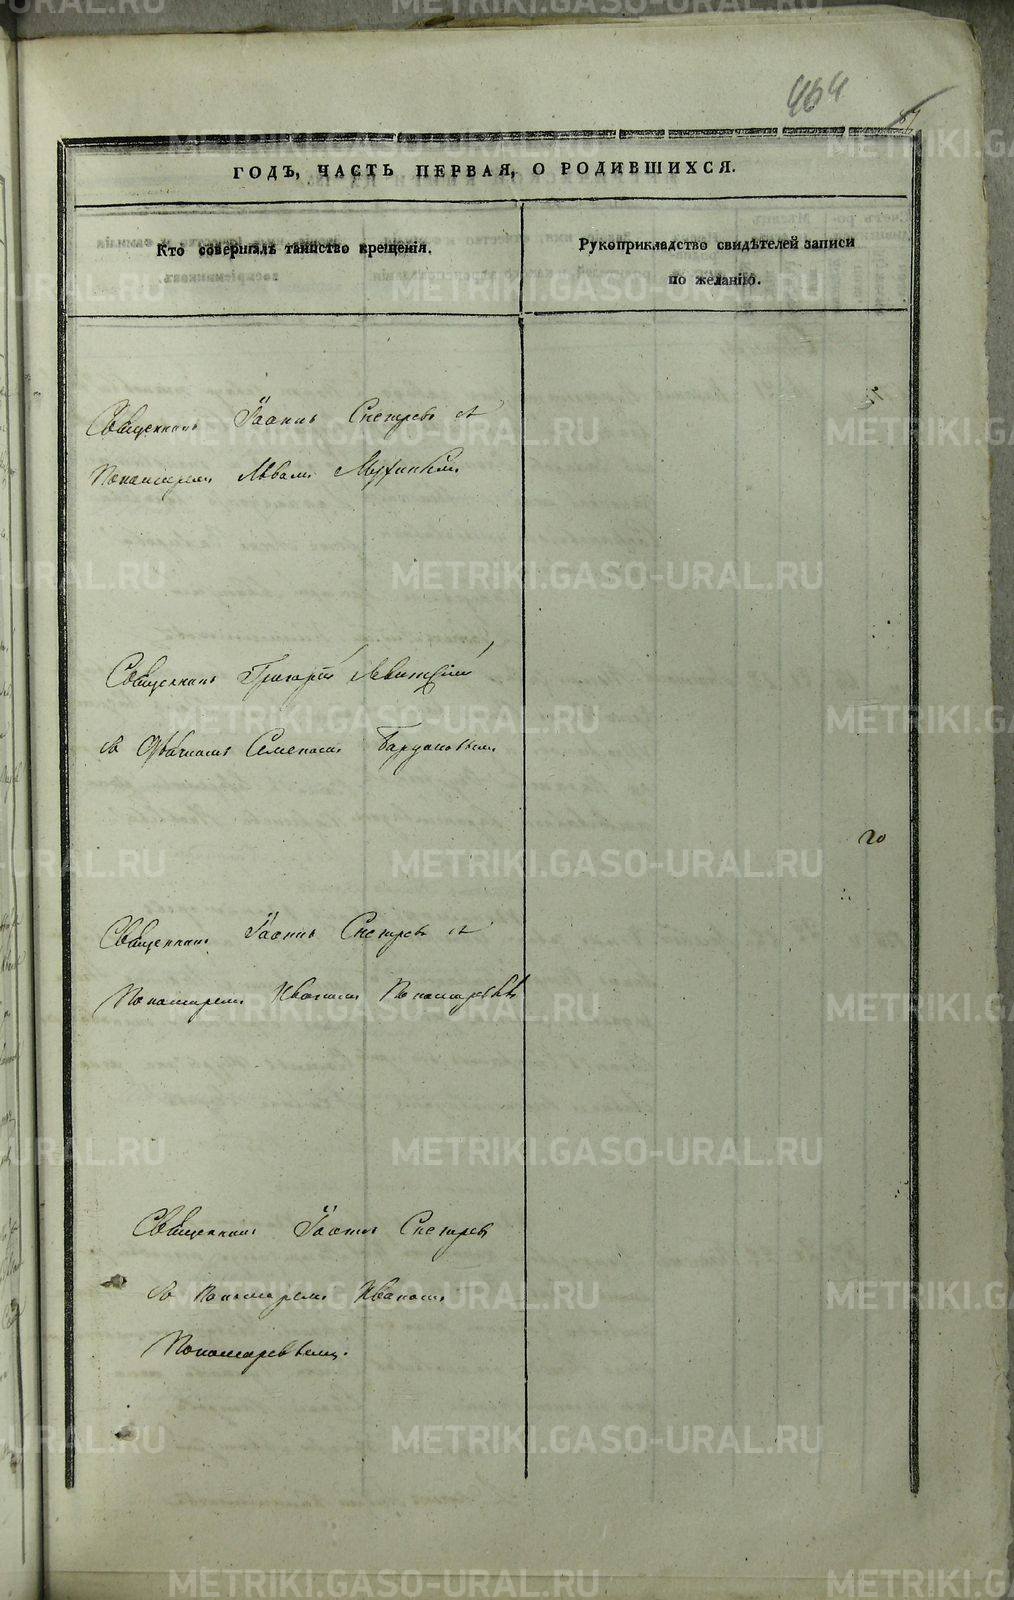 464
ГОДЪ, ЧАСТЬ ПЕРВАЯ, О РОДИВШИХСЯ.
Кто совершалъ таинство крещенія.
Рукоприкладство свидѣтелей записи
по желанію.
Священникъ Іоаннъ Снегиревъ съ
Пономаремъ Львомъ
Священникъ Григорій Левитскій
съ Семеномъ
Священникъ Іоаннъ Снегиревъ съ
Пономаремъ Иваномъ Пономаревымъ
20
Священникъ Іоаннъ Снегиревъ
съ пономаремъ Иваномъ
Пономаревымъ.
METRIKI.GASO-URAL.RU